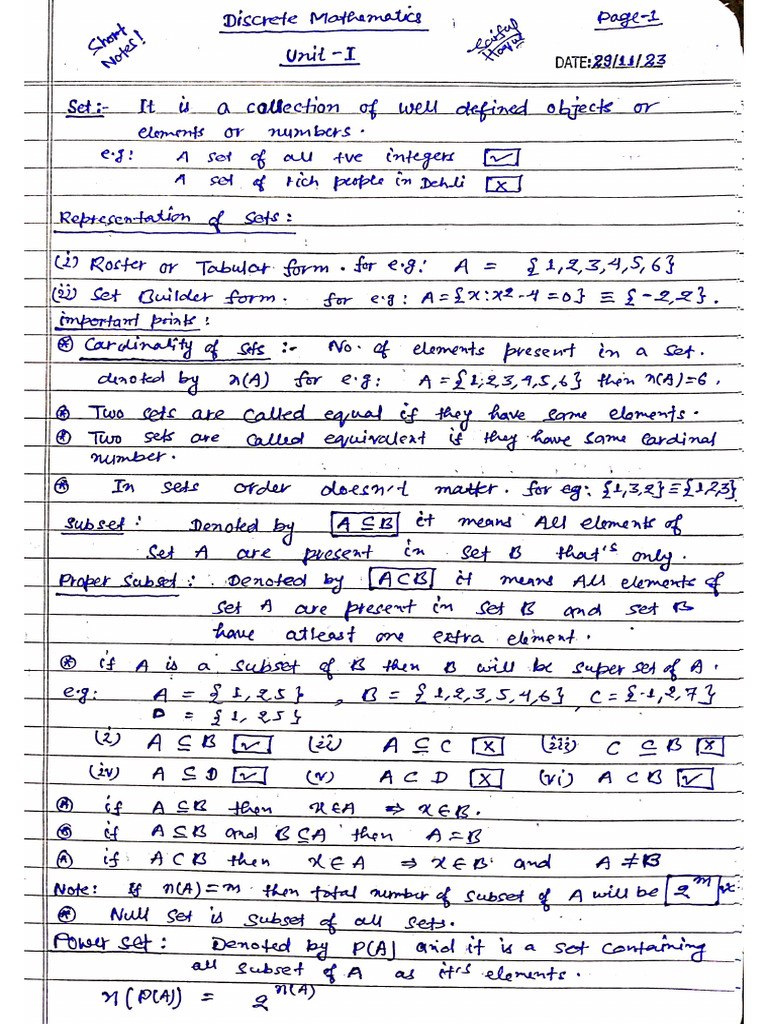 Discrete Mathematics
Page-1
Short Notes!
Saiful Haque
Unit-I
DATE: 29/11/23
Set:- It is a collection of well defined objects or
elements or numbers.
e.g: A set of all +ve integers ✓
A set of rich people in Dehli x
Representation of sets:
(i) Roster or Tabular form. for e.g: A = {1,2,3,4,5,6}
(ii) Set Builder form. for e.g: A={x:x²-4=0} ≡ {-2,2}.
important points:
* Cardinality of sets :- No. of elements present in a set.
denoted by n(A) for e.g: A={1,2,3,4,5,6} then n(A)=6.
* Two sets are called equal if they have same elements.
* Two sets are called equivalent if they have same cardinal
number.
* In sets order doesn't matter. for eg: {1,3,2}≡{1,2,3}
Subset: Denoted by A⊆B it means All elements of
set A are present in set B that's only.
Proper Subset: Denoted by A⊂B it means All elements of
set A are present in set B and set B
have atleast one extra element.
* if A is a subset of B then B will be super set of A.
e.g: A = {1,25}, B = {1,2,3,5,4,6}, C={-1,2,7}
D = {1,25}
(i) A⊆B ✓ (ii) A⊆C x (iii) C⊆B x
(iv) A⊆D ✓ (v) A⊂D x (vi) A⊂B ✓
* if A⊆B then x∈A ⇒ x∈B.
* if A⊆B and B⊆A then A=B
* if A⊂B then x∈A ⇒ x∈B and A≠B
Note: If n(A)=m then total number of subset of A will be 2^m
* Null set is subset of all sets.
Power set: Denoted by P(A) and it is a set containing
all subset of A as it's elements.
n(P(A)) = 2^n(A)